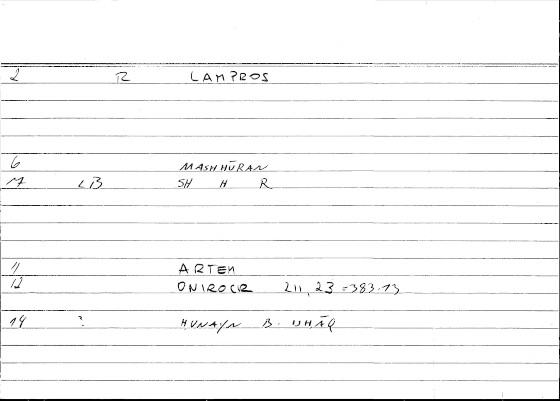 2 R LAMPROS
6 MASHHŪRAN
LB SH H R
11 ARTEM
12 ONIROCR 211, 23 = 383.13
14 ? HUNAYN B. ISHĀQ